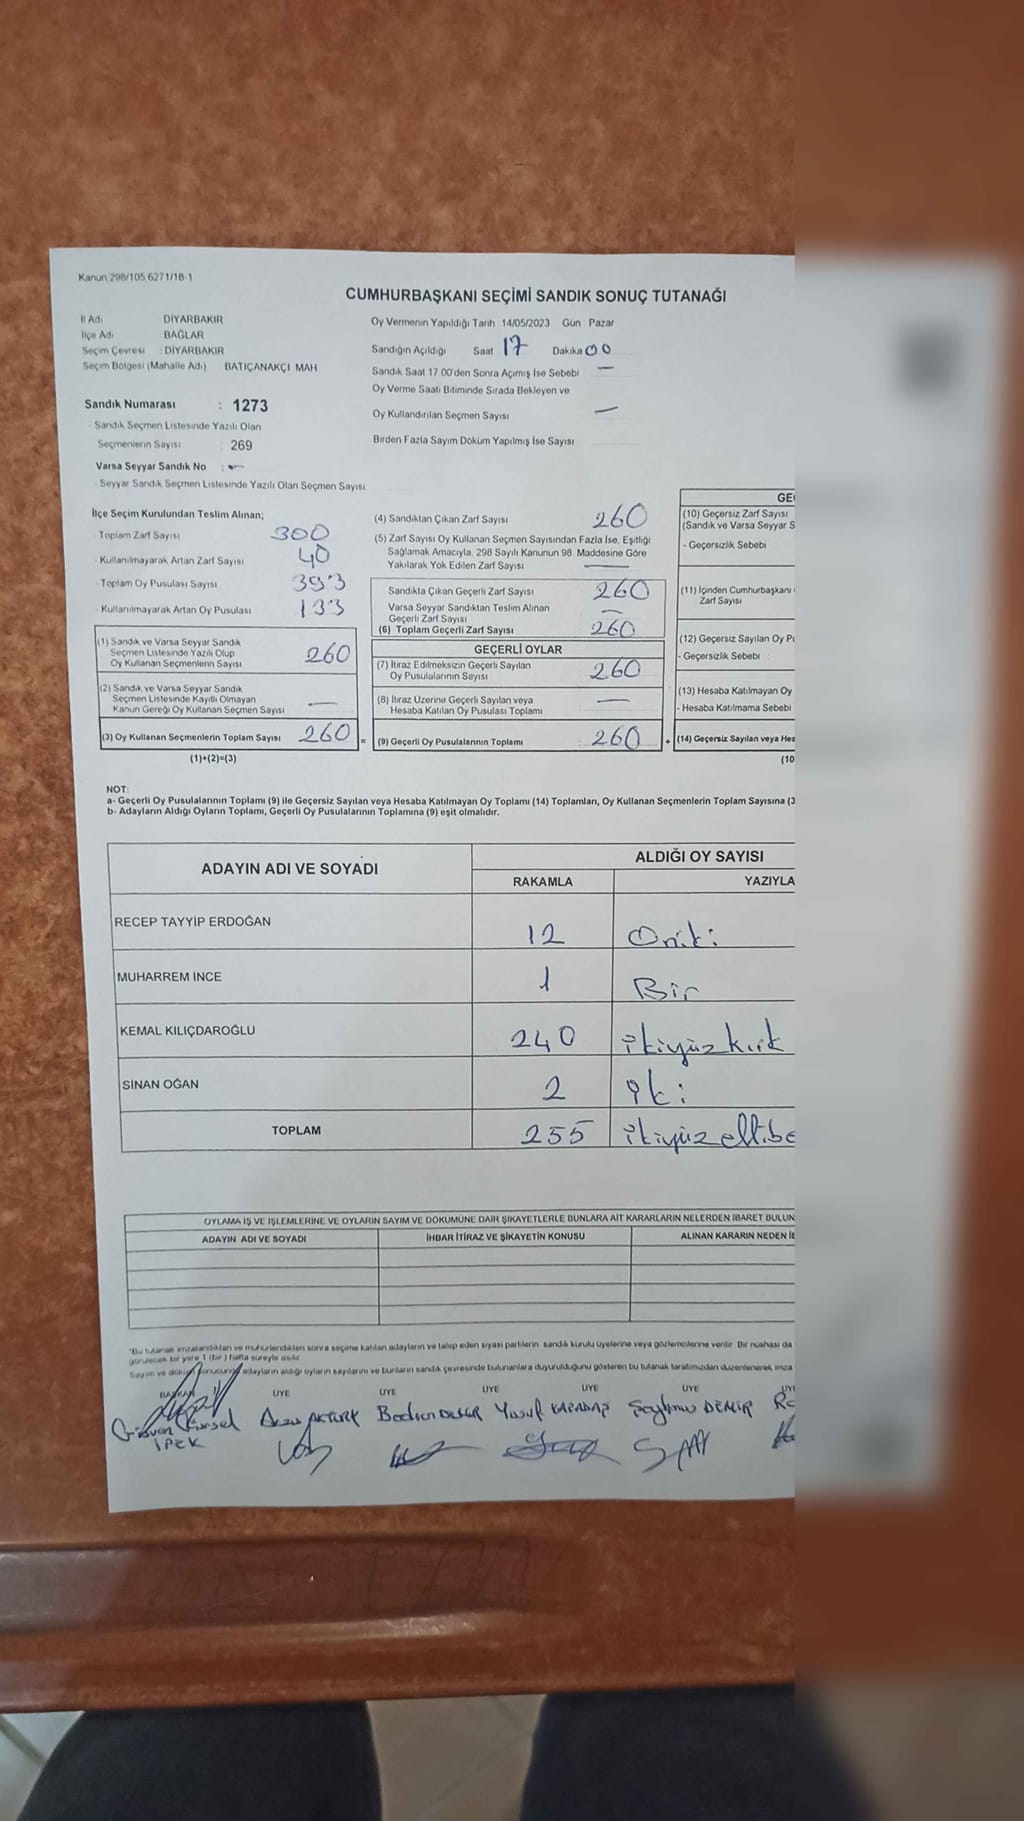 Kanun 298/105 6271/18-1
CUMHURBAŞKANI SEÇİMİ SANDIK SONUÇ TUTANAĞI
İl Adı DİYARBAKIR
İlçe Adı BAĞLAR
Seçim Çevresi : DİYARBAKIR
Seçim Bölgesi (Mahalle Adı) BATIÇANAKÇI MAH
Oy Vermenin Yapıldığı Tarih 14/05/2023 Gün Pazar
Sandığın Açıldığı Saat 17 Dakika 00
Sandık Saat 17 00'den Sonra Açımış İse Sebebi —
Oy Verme Saati Bitiminde Sırada Bekleyen ve
Oy Kullandırılan Seçmen Sayısı —
Birden Fazla Sayım Döküm Yapılmış İse Sayısı
Sandık Numarası : 1273
- Sandık Seçmen Listesinde Yazılı Olan
Seçmenlerin Sayısı : 269
Varsa Seyyar Sandık No : —
- Seyyar Sandık Seçmen Listesinde Yazılı Olan Seçmen Sayısı
İlçe Seçim Kurulundan Teslim Alınan;
- Toplam Zarf Sayısı 300
- Kullanılmayarak Artan Zarf Sayısı 40
- Toplam Oy Pusulası Sayısı 393
- Kullanılmayarak Artan Oy Pusulası 133
(1) Sandık ve Varsa Seyyar Sandık
Seçmen Listesinde Yazılı Olup
Oy Kullanan Seçmenlerin Sayısı 260
(2) Sandık ve Varsa Seyyar Sandık
Seçmen Listesinde Kayıtlı Olmayan
Kanun Gereği Oy Kullanan Seçmen Sayısı —
(3) Oy Kullanan Seçmenlerin Toplam Sayısı 260 =
(1)+(2)=(3)
(4) Sandıktan Çıkan Zarf Sayısı 260
(5) Zarf Sayısı Oy Kullanan Seçmen Sayısından Fazla İse, Eşitliği
Sağlamak Amacıyla, 298 Sayılı Kanunun 98. Maddesine Göre
Yakılarak Yok Edilen Zarf Sayısı —
Sandıkta Çıkan Geçerli Zarf Sayısı 260
Varsa Seyyar Sandıktan Teslim Alınan
Geçerli Zarf Sayısı —
(6) Toplam Geçerli Zarf Sayısı 260
GEÇERLİ OYLAR
(7) İtiraz Edilmeksizin Geçerli Sayılan
Oy Pusulalarının Sayısı 260
(8) İtiraz Üzerine Geçerli Sayılan veya
Hesaba Katılan Oy Pusulası Toplamı —
(9) Geçerli Oy Pusulalarının Toplamı 260 +
(10) Geçersiz Zarf Sayısı
(Sandık ve Varsa Seyyar S
- Geçersizlik Sebebi
(11) İçinden Cumhurbaşkanı
Zarf Sayısı
(12) Geçersiz Sayılan Oy
- Geçersizlik Sebebi
(13) Hesaba Katılmayan Oy
- Hesaba Katılmama Sebebi
(14) Geçersiz Sayılan veya Hes
(10
NOT:
a- Geçerli Oy Pusulalarının Toplamı (9) ile Geçersiz Sayılan veya Hesaba Katılmayan Oy Toplamı (14) Toplamları, Oy Kullanan Seçmenlerin Toplam Sayısına (3
b- Adayların Aldığı Oyların Toplamı, Geçerli Oy Pusulalarının Toplamına (9) eşit olmalıdır.
ADAYIN ADI VE SOYADI ALDIĞI OY SAYISI
RAKAMLA YAZIYLA
RECEP TAYYİP ERDOĞAN 12 Oniki
MUHARREM İNCE 1 Bir
KEMAL KILIÇDAROĞLU 240 ikiyüzkırk
SİNAN OĞAN 2 iki
TOPLAM 255 ikiyüzellibe
OYLAMA İŞ VE İŞLEMLERİNE VE OYLARIN SAYIM VE DÖKÜMÜNE DAİR ŞİKAYETLERLE BUNLARA AİT KARARLARIN NELERDEN İBARET BULUN
ADAYIN ADI VE SOYADI İHBAR İTİRAZ VE ŞİKAYETİN KONUSU ALINAN KARARIN NEDEN İ
*Bu tutanak imzalandıktan ve mühürlendikten sonra seçime katılan adayların ve talep eden siyasi partilerin sandık kurulu üyelerine veya gözlemcilerine verilir. Bir nüshası da
görülecek bir yere 1 (bir) hafta süreyle asılır.
Sayım ve döküm sonucunda adayların aldığı oyların sayılarını ve bunların sandık çevresinde bulunanlara duyurulduğunu gösteren bu tutanak tarafımızdan düzenlenerek imza
BAŞKAN ÜYE ÜYE ÜYE ÜYE ÜYE
Gürsel AKTÜRK Yusuf KARADAŞ DEMİR
İPEK